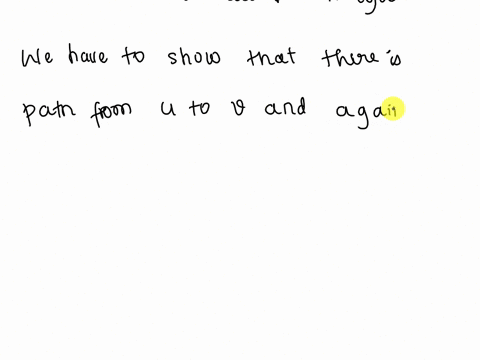 We have to show that there is
path from u to v and again